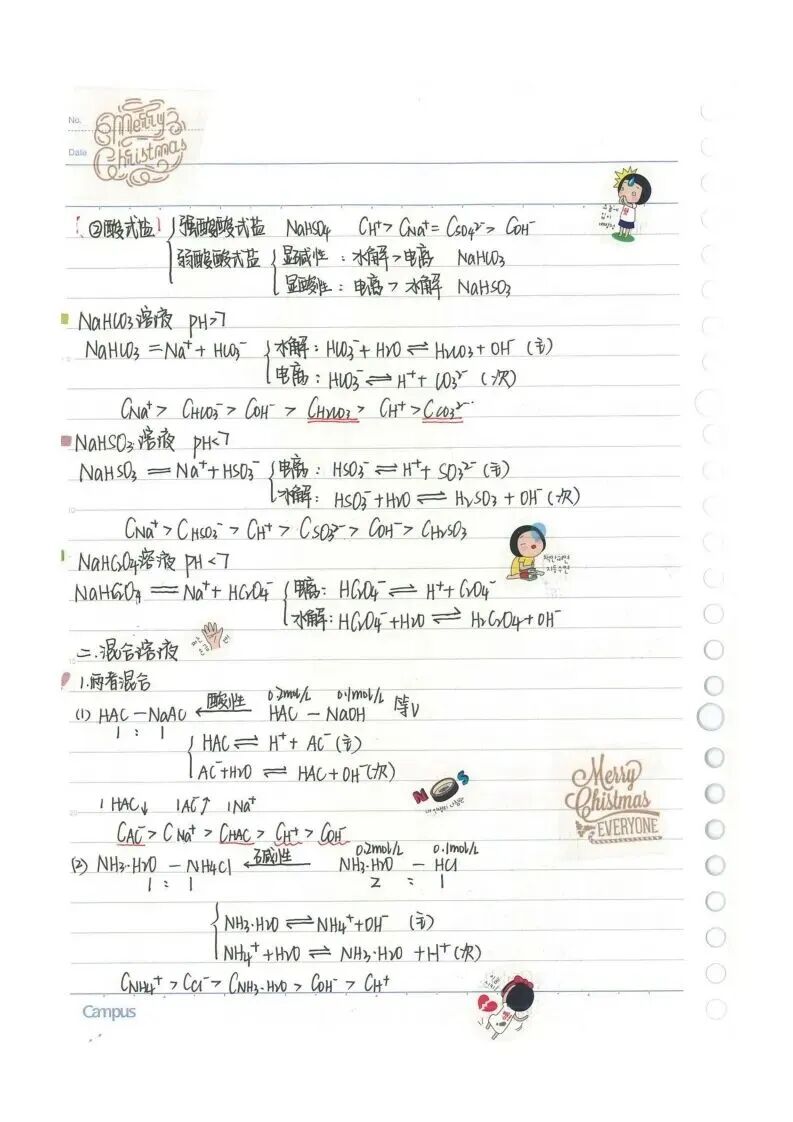 No.
Merry
Christmas
Date
[②酸式盐] { 强酸酸式盐 NaHSO4 CH⁺ > CNa⁺ = CSO4²⁻ > COH⁻
弱酸酸式盐 { 显碱性：水解>电离 NaHCO3
显酸性：电离>水解 NaHSO3
NaHCO3溶液 pH>7
NaHCO3 = Na⁺ + HCO3⁻ { 水解：HCO3⁻ + H2O ⇌ H2CO3 + OH⁻ (主)
电离：HCO3⁻ ⇌ H⁺ + CO3²⁻ (次)
CNa⁺ > CHCO3⁻ > COH⁻ > CH2CO3 > CH⁺ > CCO3²⁻
NaHSO3溶液 pH<7
NaHSO3 = Na⁺ + HSO3⁻ { 电离：HSO3⁻ ⇌ H⁺ + SO3²⁻ (主)
水解：HSO3⁻ + H2O ⇌ H2SO3 + OH⁻ (次)
CNa⁺ > CHSO3⁻ > CH⁺ > CSO3²⁻ > COH⁻ > CH2SO3
NaHCrO4溶液 pH<7
NaHCrO4 = Na⁺ + HCrO4⁻ { 电离：HCrO4⁻ ⇌ H⁺ + CrO4⁻
水解：HCrO4⁻ + H2O ⇌ H2CrO4 + OH⁻
二.混合溶液
1.两者混合
(1) HAC — NaAC ←酸性 0.2mol/L HAC — 0.1mol/L NaOH 等V
1 : 1
{ HAC ⇌ H⁺ + AC⁻ (主)
AC⁻ + H2O ⇌ HAC + OH⁻ (次)
N S
Merry
Chistmas
EVERYONE
1HAC↓ 1AC⁻↑ 1Na⁺
CAC⁻ > CNa⁺ > CHAC > CH⁺ > COH⁻
(2) NH3·H2O — NH4Cl ←碱性 0.2mol/L NH3·H2O — 0.1mol/L HCl
1 : 1 2 : 1
{ NH3·H2O ⇌ NH4⁺ + OH⁻ (主)
NH4⁺ + H2O ⇌ NH3·H2O + H⁺ (次)
CNH4⁺ > CCl⁻ > CNH3·H2O > COH⁻ > CH⁺
Campus